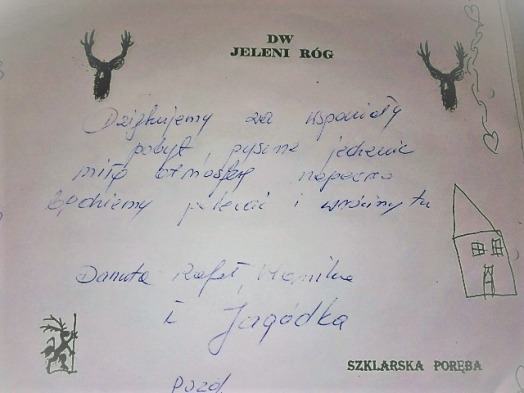 DW
JELENI RÓG
Dziękujemy za wspaniały
pobyt, pyszne jedzenie
miłą atmosferę napewno
będziemy polecać i wrócimy tu
Danuta Rafał, Monika
i Jagódka
SZKLARSKA PORĘBA
Pozd